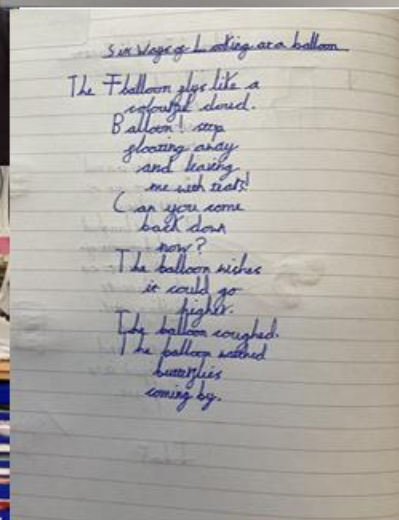 Six Ways of Looking at a balloon
The balloon flys like a
coloured cloud.
Balloon! stop
floating away
and leaving
me with tears!
Can you come
back down
now?
The balloon wishes
it could go
higher.
The balloon coughed.
The balloon watched
butterflies
coming by.